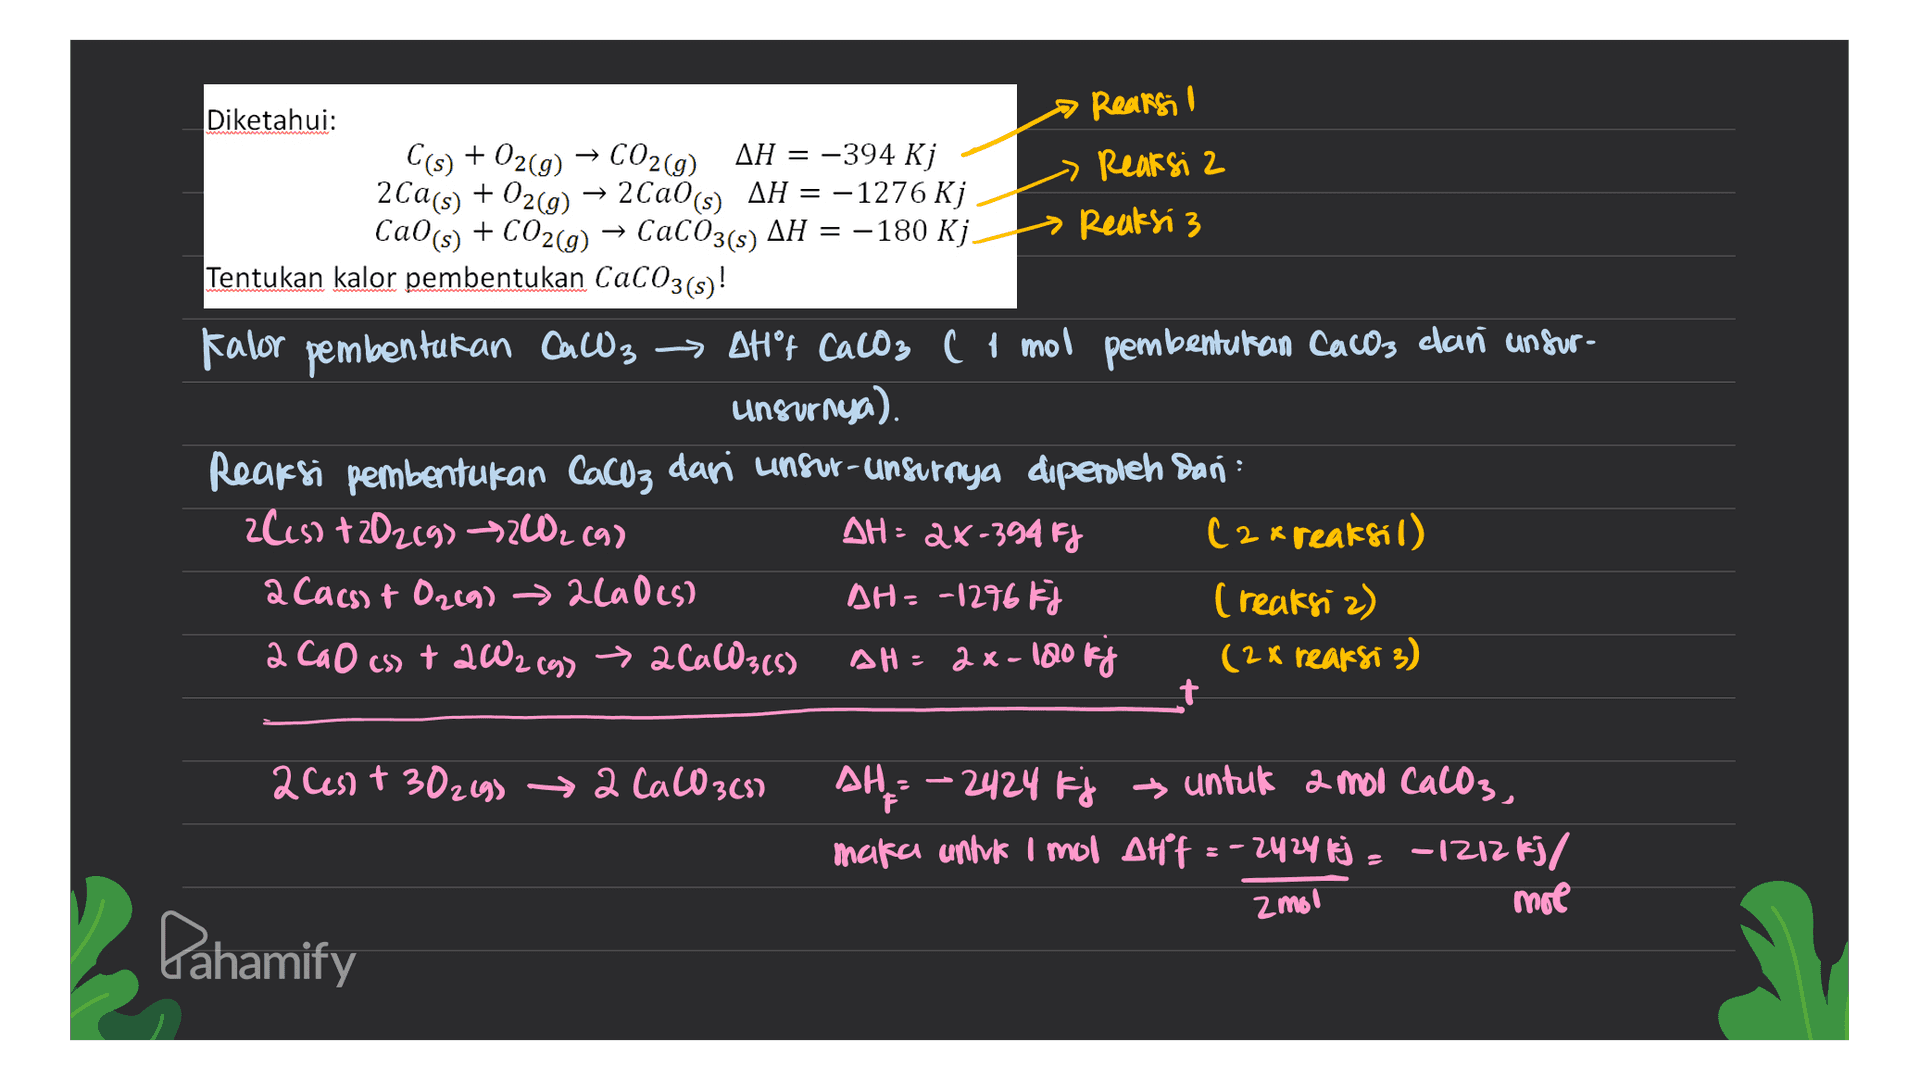 Diketahui:
C(s) + O2(g) → CO2(g) ΔH = −394 Kj → Reaksi 1
2Ca(s) + O2(g) → 2CaO(s) ΔH = −1276 Kj → Reaksi 2
CaO(s) + CO2(g) → CaCO3(s) ΔH = −180 Kj → Reaksi 3
Tentukan kalor pembentukan CaCO3(s)!
Kalor pembentukan CaCO3 → ΔH°f CaCO3 ( 1 mol pembentukan CaCO3 dari unsur-
unsurnya).
Reaksi pembentukan CaCO3 dari unsur-unsurnya diperoleh dari :
2C(s) + 2O2(g) → 2CO2(g) ΔH = 2x-394 Kj (2 x reaksi 1)
2Ca(s) + O2(g) → 2CaO(s) ΔH = -1276 Kj (reaksi 2)
2 CaO(s) + 2CO2(g) → 2CaCO3(s) ΔH = 2x-180 Kj (2x reaksi 3)
+
2C(s) + 3O2(g) → 2 CaCO3(s) ΔHF = -2424 Kj → untuk 2 mol CaCO3,
maka untuk 1 mol ΔH°f = -2424 Kj = -1212 Kj/
2 mol mol
Pahamify